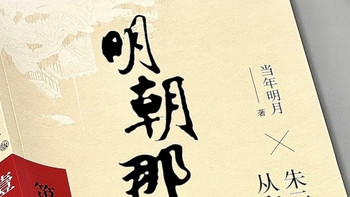 明朝那
当年明月
著
朱
从
壹
第